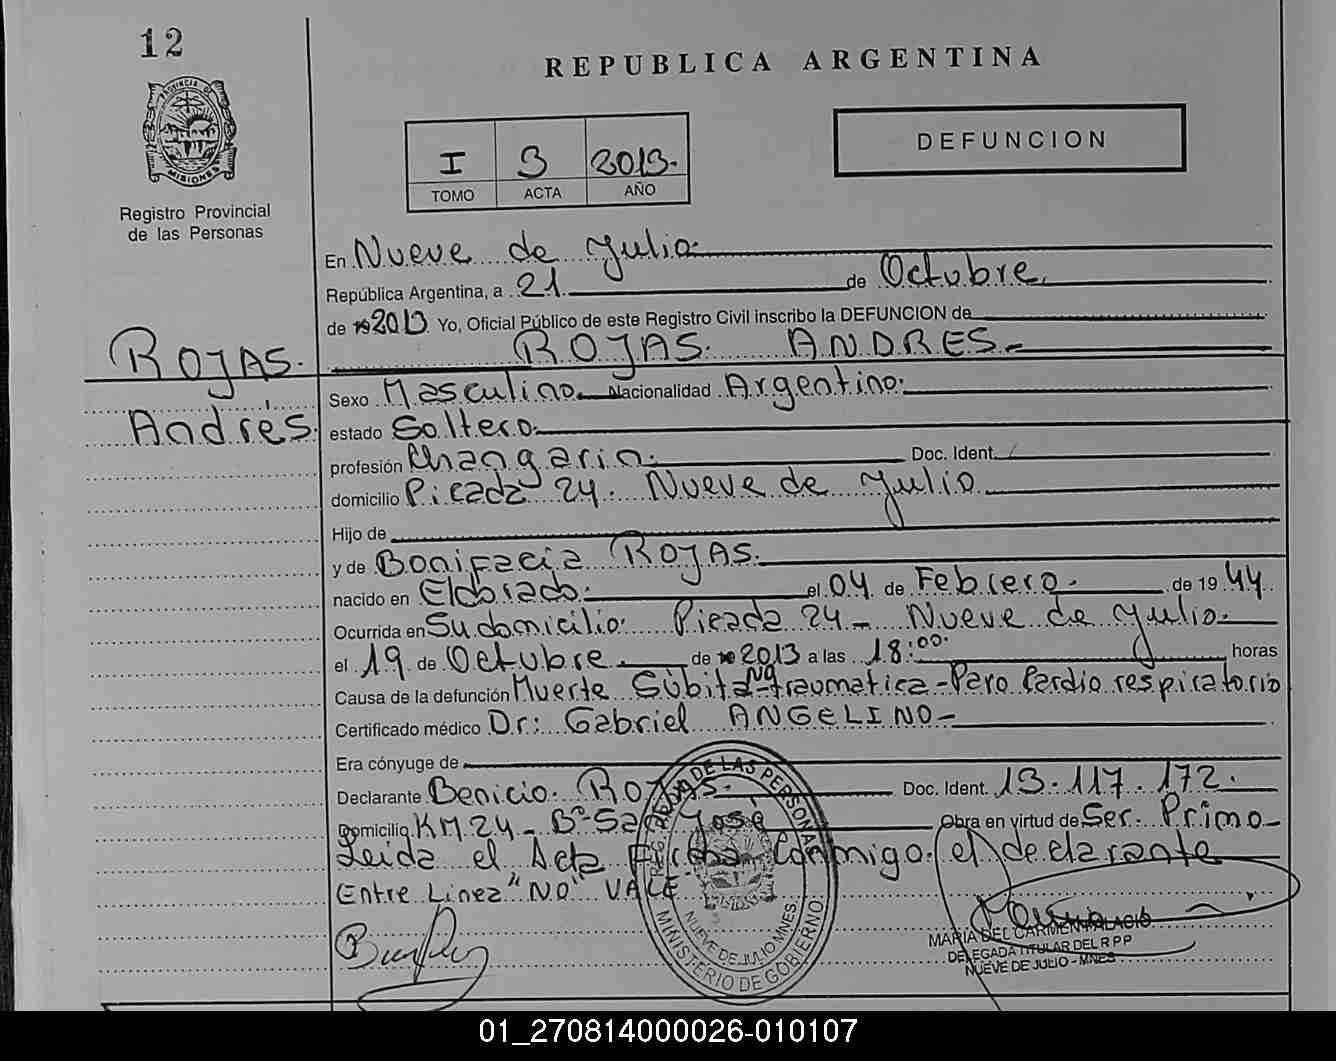 12
REPUBLICA ARGENTINA
PROVINCIA DE
MISIONES
Registro Provincial
de las Personas
I 3 2013.
TOMO ACTA AÑO
DEFUNCION
En Nueve de Julio.
República Argentina, a 21. de Octubre.
de 2013 Yo, Oficial Público de este Registro Civil inscribo la DEFUNCION de
ROJAS. ANDRES.
ROJAS.
Andrés.
Sexo Masculino. Nacionalidad Argentino.
estado Soltero.
profesión Changarin. Doc. Ident.
domicilio Picada 24. Nueve de Julio
Hijo de
y de Bonifacia ROJAS.
nacido en Eldorado. el 04 de Febrero. de 1944.
Ocurrida en Su domicilio. Picada 24- Nueve de Julio.
el 19 de Octubre. de 2013 a las 18:00. horas
Causa de la defunción Muerte Súbita No traumatica-Paro Cardio respiratorio
Certificado médico Dr: Gabriel ANGELINO-
Era cónyuge de
Declarante Benicio. ROJAS. Doc. Ident. 13.117.172.
Domicilio KM 24- Bº San José Obra en virtud de Ser. Primo-
Leida el Acta Firma Conmigo. el declarante
Entre Linea "NO" VALE
DE LAS PERSONAS
NUEVE DE JULIO MNES.
MINISTERIO DE GOBIERNO
MARIA DEL CARMEN PALACIO
DELEGADA TITULAR DEL R P P
NUEVE DE JULIO - MNES
01_270814000026-010107